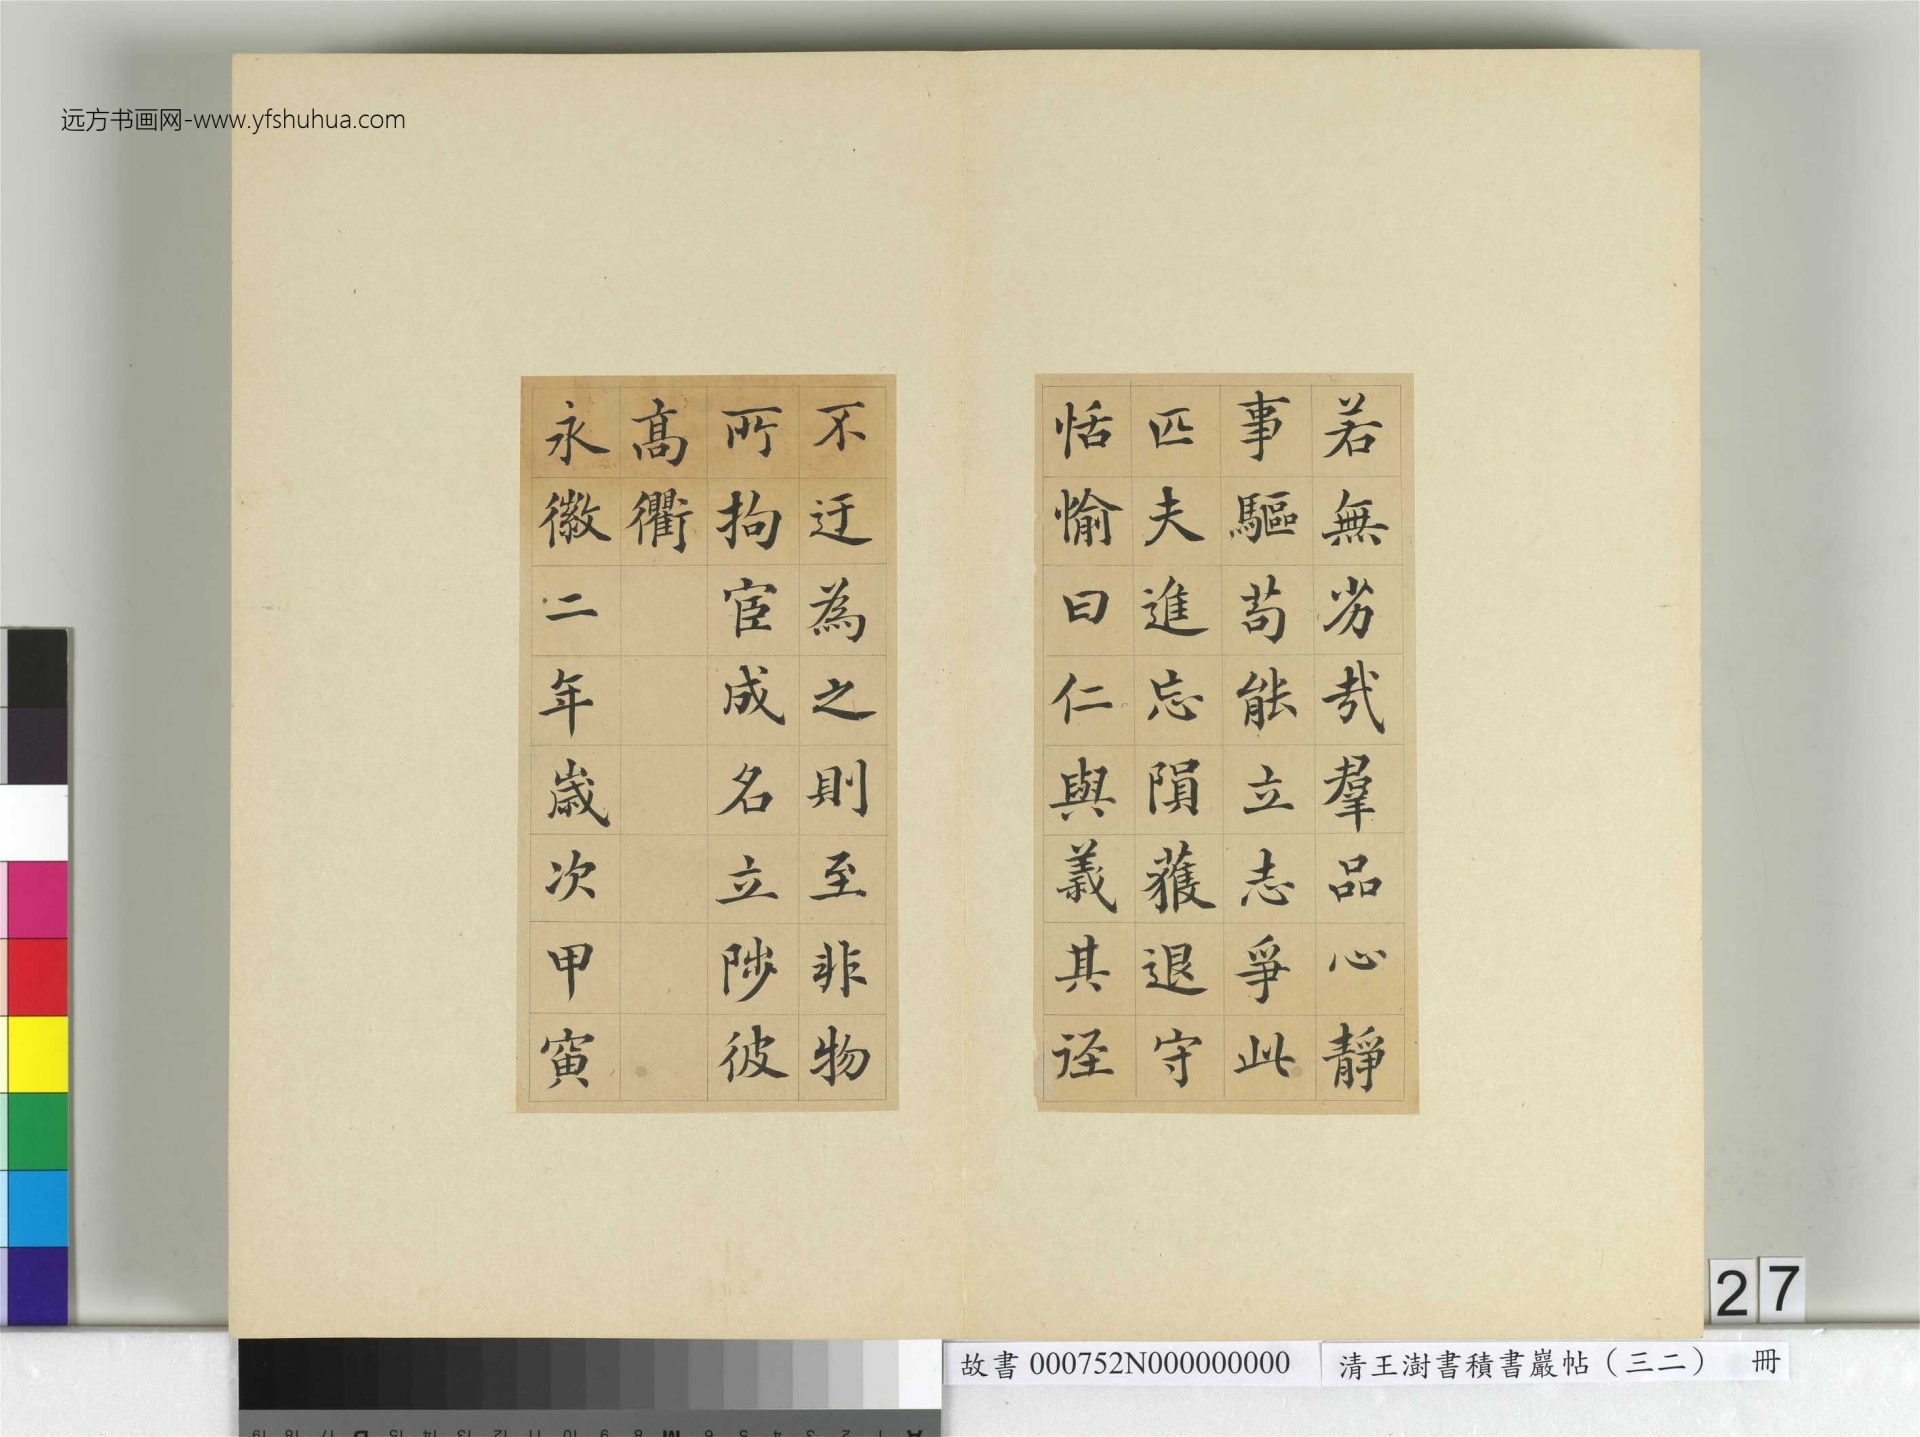 远方书画网-www.yfshuhua.com
若無劣哉羣品心靜
事驅苟能立志爭此
匹夫進忘隕蒦退守
恬愉曰仁與義其
不迂為之則至非物
所拘宦成名立陟彼
高衢
永徽二年歲次甲寅
27
故書 000752N000000000
清王澍書積書巖帖（三二） 冊